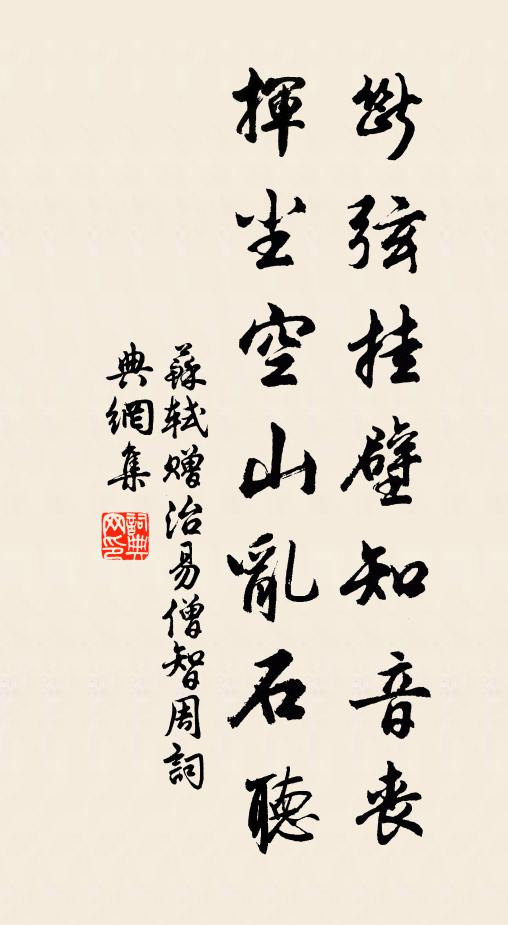 斷弦挂壁知音喪
揮塵空山亂石聽
蘇軾贈治易僧智周詞
典網集
詞典網印